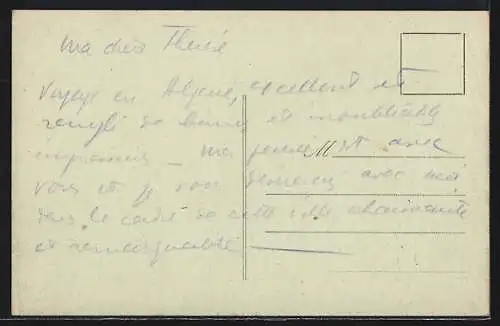 Ma chère Thérèse
Voyage en Algérie, excellent et
rempli de bonnes et inoubliables
impressions — ma pensée est avec
M
vous et je vous avec moi
dans le cadre de cette ville charmante
et remarquable